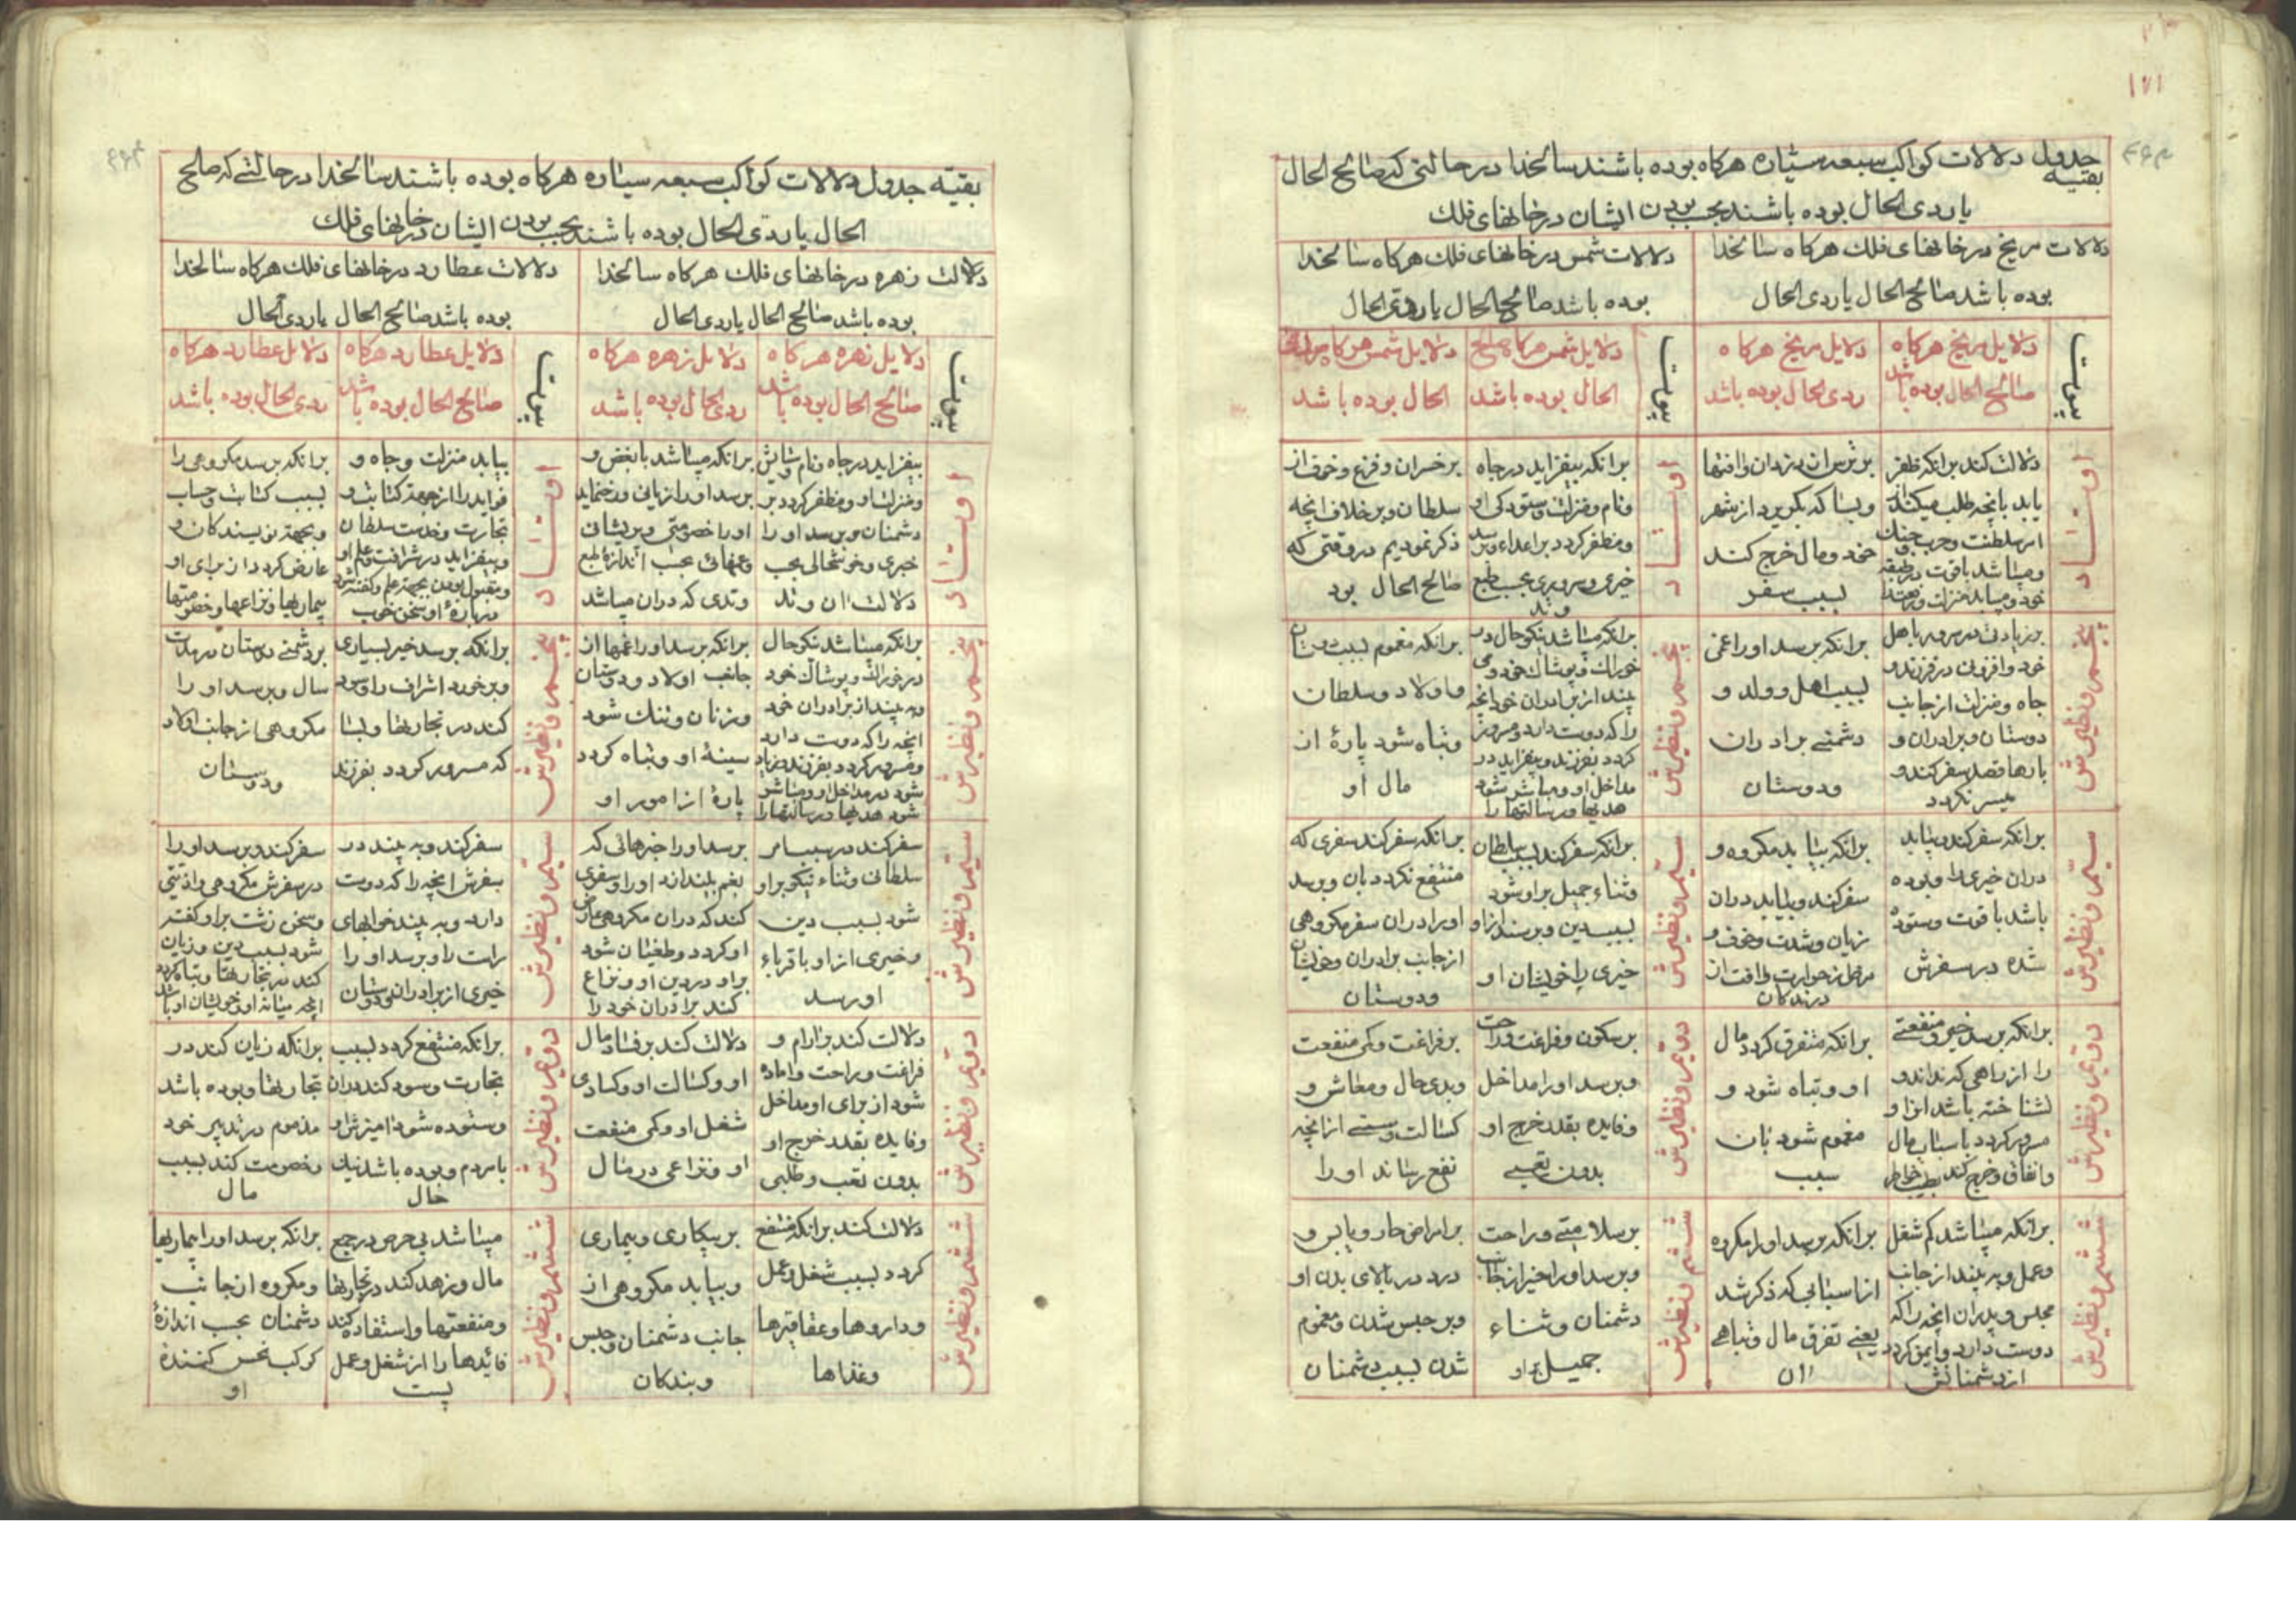 ۱۷۱
بقیه جدول دلالات کواکب سبعه سیاره هرکاه بوده باشند سالخدا در حالتی که صالح الحال
یا ردی الحال بوده باشند بحسب بودن ایشان در خانهای فلک
دلالات مریخ در خانهای فلک هرکاه سالخدا
بوده باشد صالح الحال یا ردی الحال
دلالات شمس در خانهای فلک هرکاه سالخدا
بوده باشد صالح الحال یا ردی الحال
بیوت
دلایل مریخ هرکاه
صالح الحال بوده باشد
دلایل مریخ هرکاه
ردی الحال بوده باشد
بیوت
دلایل شمس هرکاه صالح
الحال بوده باشد
دلایل شمس هرکاه
الحال بوده باشد
اوتاد
دلالت کند برانکه ظفر
یابد بانچه طلب میکند
از سلطنت و حرب
و میباشد باقوت در طبقه
خود و میباید منزلت
بر شر از دزدان وافتها
وبسا که بکریزد از شهر
خود و مال خرج کند
بسبب سفر
اوتاد
برانکه بیفزاید در جاه
ونام ومنزلت وستودکی او
ومظفر کردد بر اعداء وبرسد
خیری وسروری بحسب طبع
وتد
بر خسران وفزع وخوف از
سلطان وبر خلاف انچه
ذکر نمودیم در وقتی که
صالح الحال بود
پنجم ونظیرش
بر زیادتی سرور باهل
خود وافزونی در فرزند و
جاه ومنزلت از جانب
دوستان وبرادران و
بارها قصد سفر کند و
میسر نکردد
برانکه برسد اورا غمی
بسبب اهل وولد و
دشمنی برادران
ودوستان
پنجم ونظیرش
برانکه میباشد نیکو حال در
خوراک وپوشاک خود و
بیند از برادران خود انچه
را که دوست دارد ومسرور
کردد بفرزند وبیفزاید در
مداخل او ومباشر شود
هدیها ورسالتها را
برانکه مغموم بسبب دوستان
واولاد وسلطان
وتباه شود پارۀ از
مال او
سیّم ونظیرش
برانکه سفر کند وبیابد
دران خیری را وبوده
باشد باقوت وستوده
شده در سفرش
برانکه بیابد مکروه و
سفر کند وبیابد دران
زیان وشدت وخوف و
مرض از حرارت وافت از
درندکان
سیّم ونظیرش
برانکه سفر کند بسبب سلطان
وثناء جمیل بر او شود
بسبب دین وبرسد از او
خیری را خویشان او
برانکه سفر کند سفری که
منتفع نکردد بان وبرسد
اورا دران سفر مکروهی
از جانب برادران وخویشان
ودوستان
دوّیم ونظیرش
برانکه برسد خیر ومنفعتی
را از راهی که نداند و
نشناخته باشد انرا و
مسرور کردد باسباب مال
وانفاق وخرج کند بطیب خاطر
برانکه متفرق کردد مال
او وتباه شود و
مغموم شود بان
سبب
دوّیم ونظیرش
بر سکون وفراغت وراحت
وبرسد اورا مداخل
وفایده بقدر خرج او
بدون تعبی
بر فراغت وکمی منفعت
وبدی حال ومعاش و
کسالت وسستی از انچه
نفع رساند اورا
ششم ونظیرش
برانکه میباشد کم شغل
وعمل وبه بیند از جانب
مجلس وپدران انچه را که
دوست دارد وایمن کردد
از دشمنانش
برانکه برسد اورا مکروه
از اسبابی که ذکر شد
یعنی تفرق مال وتباهی
ان
ششم ونظیرش
بر سلامتی وراحت
وبرسد اورا خیر از جانب
دشمنان وثناء
جمیل بر او
بر امراض حار ویابس و
درد در بالای بدن او
وبر حبس شدن ومغموم
شدن بسبب دشمنان
بقیّه جدول دلالات کواکب سبعه سیاره هرکاه بوده باشند سالخدا در حالتی که صالح
الحال یا ردّی الحال بوده باشند بحسب بودن ایشان در خانهای فلک
دلالت زهره در خانهای فلک هرکاه سالخدا
بوده باشد صالح الحال یا ردی الحال
دلالات عطارد در خانهای فلک هرکاه سالخدا
بوده باشد صالح الحال یا ردی الحال
بیوت
دلایل زهره هرکاه
صالح الحال بوده باشد
دلایل زهره هرکاه
ردی الحال بوده باشد
بیوت
دلایل عطارد هرکاه
صالح الحال بوده باشد
دلایل عطارد هرکاه
ردی الحال بوده باشد
اوتاد
بیفزاید در جاه ونام وستایش
ومنزلت او ومظفر کردد بر
دشمنان وبرسد او را
خیری وخوشحالی بحسب
دلالت ان وتد
برانکه میباشد با بغض و
برسد اورا زیانی ورخ نماید
اورا خصومتی وپریشانی
وغمهائی بحسب اندازۀ طبع
وتدی که دران میباشد
اوتاد
بیابد منزلت وجاه و
فواید را از جهة کتابت و
تجارت وخدمت سلطان
وبیفزاید در شرافت وعلم او
ومقبول بودن بجهة علم وکفته شود
دربارۀ او سخن خوب
برانکه برسد مکروهی را
بسبب کتابت وحساب
وبجهة نویسندکان و
عارض کردد از برای او
پیمانها ونزاعها وخصومتها
پنجم ونظیرش
برانکه میباشد نیکو حال
در خوراک وپوشاک خود
وبه بیند از برادران خود
انچه را که دوست دارد
ومسرور کردد بفرزند وزیاد
شود در مداخل او ومباشر
شود هدیها ورسالتها را
برانکه برسد اورا غمها از
جانب اولاد ودوستان
وزنان وتنک شود
سینۀ او وتباه کردد
پارۀ از امور او
پنجم ونظیرش
برانکه برسد خیر بسیاری
وبرخورد اشراف را وسود
کند در تجارتها وبسا
که مسرور کردد بفرزند
بر دشمنی دوستان در مدت
سال وبرسد او را
مکروهی از جانب اولاد
ودوستان
سیّم ونظیرش
سفر کند در سبب امر
سلطانی وثناء نیکو بر او
شود بسبب دین
وخیری از او باقرباء
او رسد
برسد اورا خبرهائی که
بغم بیندازد اورا وسفری
کند که دران مکروهی عارض
او کردد وطغیان شود
بر او در دین او ونزاع
کند برادران خود را
سیّم ونظیرش
سفر کند وبه بیند در
سفرش انچه را که دوست
دارد وبه بیند خوابهای
راست را وبرسد او را
خیری از برادران ودوستان
سفر کند وبرسد او را
در سفرش مکروهی واذیتی
وسخن زشت بر او کفته
شود بسبب دین وزیان
کند در تجارتها وتباه کردد
انچه میانه او وخویشان او باشد
دوّیم ونظیرش
دلالت کند بر ارام و
فراغت وراحت واماده
شود از برای او مداخل
وفایده بقدر خرج او
بدون تعب وطلبی
دلالت کند بر فساد مال
او وکسالت او وکسادی
شغل او وکمی منفعت
او ونزاعی در مال
دوّیم ونظیرش
برانکه منتفع کردد بسبب
تجارت وسود کند دران
وستوده شود امیزش او
بامردم وبوده باشد نیک
حال
برانکه زیان کند در
تجارتها وبوده باشد
مذموم در تدبیر خود
وخصومت کند بسبب
مال
ششم ونظیرش
دلالت کند برانکه منتفع
کردد بسبب شغل وعمل
وداروها وعقاقیرها
وغذاها
بر بیکاری وبیماری
وبیابد مکروهی از
جانب دشمنان وحبس
وبندکان
ششم ونظیرش
میباشد بی حرص در جمع
مال وزهد کند در تجارتها
ومنفعتها واستفاده کند
فائدها را از شغل وعمل
پست
برانکه برسد اورا بیماریها
ومکروه از جانب
دشمنان بحسب اندازۀ
کوکب نحس کنندۀ
او